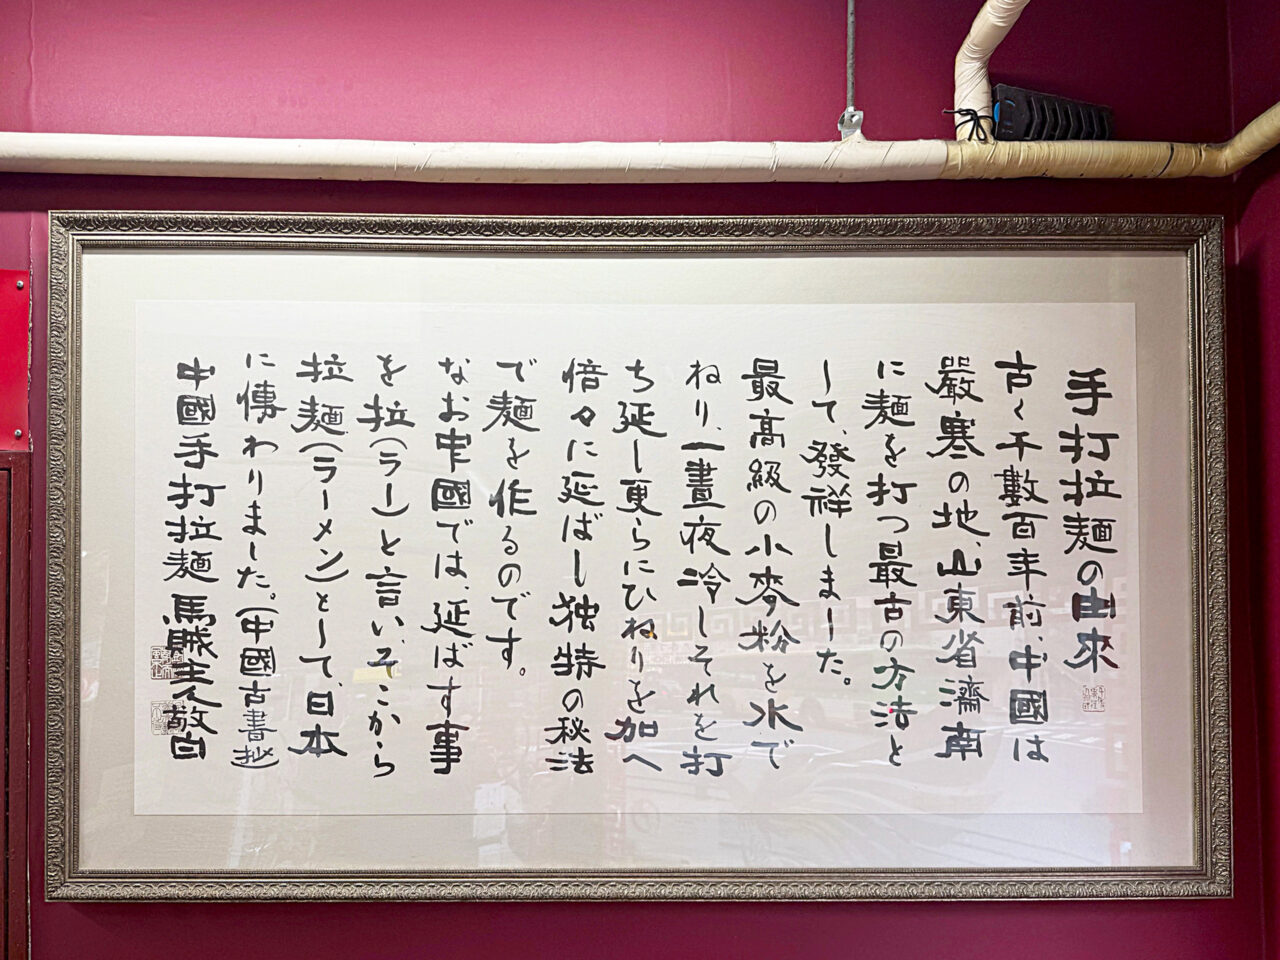 手打拉麺の由來
古く千數百年前、中國は
嚴寒の地、山東省濟南
に麺を打つ最古の方法と
して、發祥しました。
最高級の小麥粉を水で
ねり、一晝夜冷しそれを打
ち延し更らにひねりを加へ
倍々に延ばし独特の秘法
で麺を作るのです。
なお中國では、延ばす事
を拉(ラー)と言い、そこから
拉麺(ラーメン)として、日本
に傳わりました。(中國古書抄)
中國手打拉麺 馬賊主人敬白